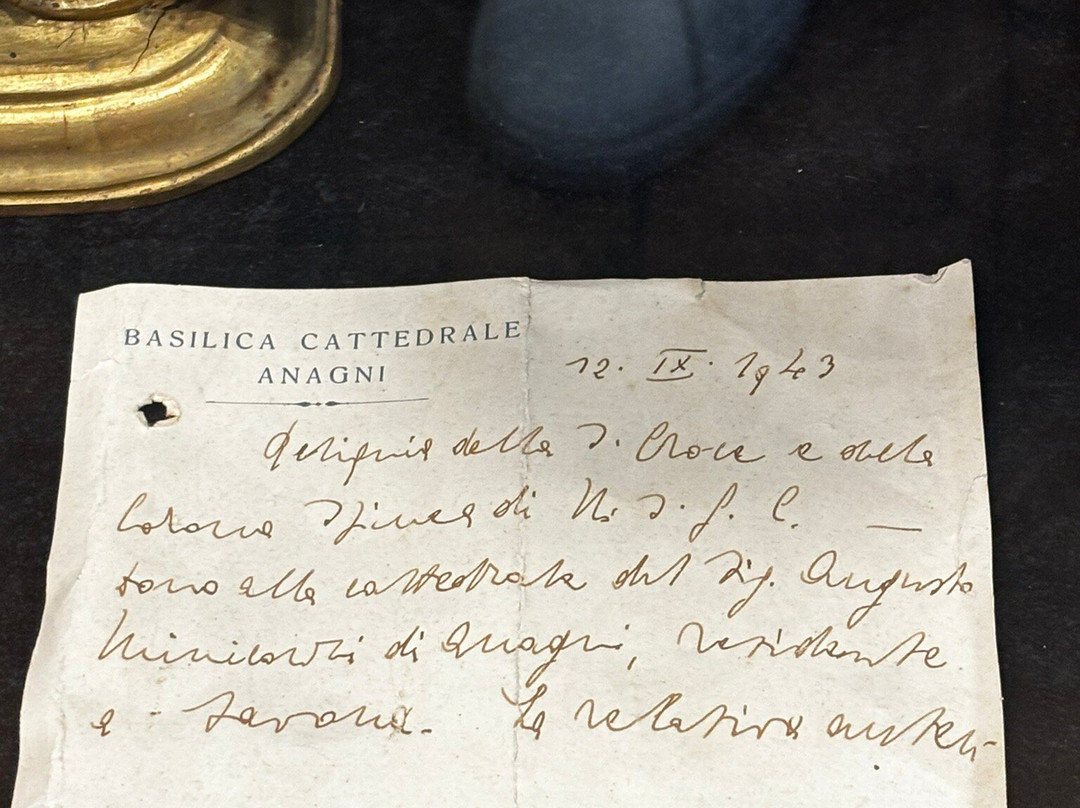 BASILICA CATTEDRALE
ANAGNI
12. IX. 1943
Reliquie della S. Croce e della
Corona Spinea di N. S. G. C. —
dono alla cattedrale del Sig. Augusto
di Anagni, residente
a Savona. La relativa auten-